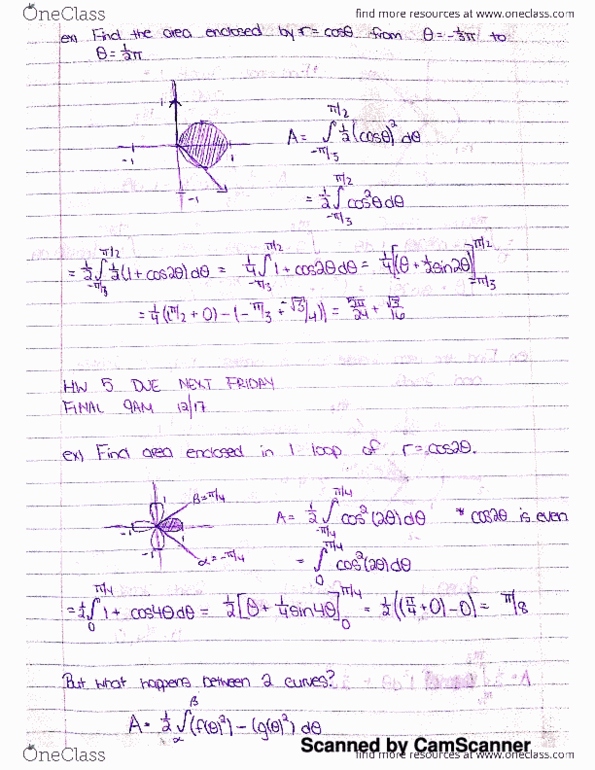 OneClass find more resources at www.oneclass.com
ex) Find the area enclosed by r = cosθ from θ = -⅓π to
θ = ½π
1
-1 1
-1
A = ∫_{-π/3}^{π/2} ½(cosθ)² dθ
= ½∫_{-π/3}^{π/2} cos²θ dθ
= ½∫_{-π/3}^{π/2} ½(1 + cos2θ) dθ = ¼∫_{-π/3}^{π/2} 1 + cos2θ dθ = ¼[(θ + ½sin2θ]_{-π/3}^{π/2}
= ¼((π/2 + 0) - (-π/3 + -√3/4)) = 5π/24 + √3/16
HW 5 DUE NEXT FRIDAY
FINAL 9AM 12/17
ex) Find area enclosed in 1 loop of r = cos2θ.
β = π/4
α = -π/4
A = ½∫_{-π/4}^{π/4} cos²(2θ) dθ * cos2θ is even
= ∫_0^{π/4} cos²(2θ) dθ
= ½∫_0^{π/4} 1 + cos4θ dθ = ½[θ + ¼sin4θ]_0^{π/4} = ½((π/4 + 0) - 0) = π/8
But what happens between 2 curves?
A = ½∫_α^β (f(θ)²) - (g(θ)²) dθ
Scanned by CamScanner
OneClass find more resources at www.oneclass.com